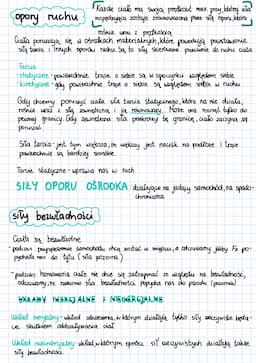 opory ruchu
Każde ciało ma swoją prędkość max. przy której siła
napędzająca zostaje zrównoważona przez siły oporu, które
rośnie wraz z prędkością
Ciała poruszają się w ośrodkach materialnych, które powodują powstawanie
siły tarcia i innych oporów ruchu. Są to siły skierowane przeciwnie do ruchu ciała
Tarcie
- statyczne - powierzchnie trące o siebie są w spoczynku względem siebie
- kinetyczne - gdy powierzchnie trące o siebie są względem siebie w ruchu
Gdy chcemy poruszyć ciało siła tarcia statycznego, która na nie działa,
rośnie wraz z siłą zewnętrzną i ją równoważy. Może ona narosnąć tylko do
pewnej granicy. Gdy zewnętrzna siła przekroczy tę granicę, ciało zaczyna się
poruszać
Siła tarcia - jest tym większa, im większy jest nacisk na podłoże i trące
powierzchnie są bardziej szorstkie.
Tarcie statyczne - wprawia nas w ruch
SIŁY OPORU OŚRODKA - działające na jadący samochód, na spado-
chroniarza
siły bezwładności
Ciała są bezwładne
- podczas przyspieszania samochodu chcą zostać w miejscu, a odczuwamy jakby Fb po-
pychała nas do tyłu (siła pozorna)
- podczas hamowania ciało nie chce się zatrzymać ze względu na bezwładność,
odczuwamy, że nieznana siła bezwładności popycha nas do przodu (pozorna)
UKŁADY INERCJALNE I NIEINERCJALNE
Układ inercjalny - układ odniesienia, w którym działają tylko siły rzeczywiste będą-
ce skutkiem oddziaływania ciał.
Układ nieinercjalny - układ, w którym oprócz sił rzeczywistych działają także
siły bezwładności